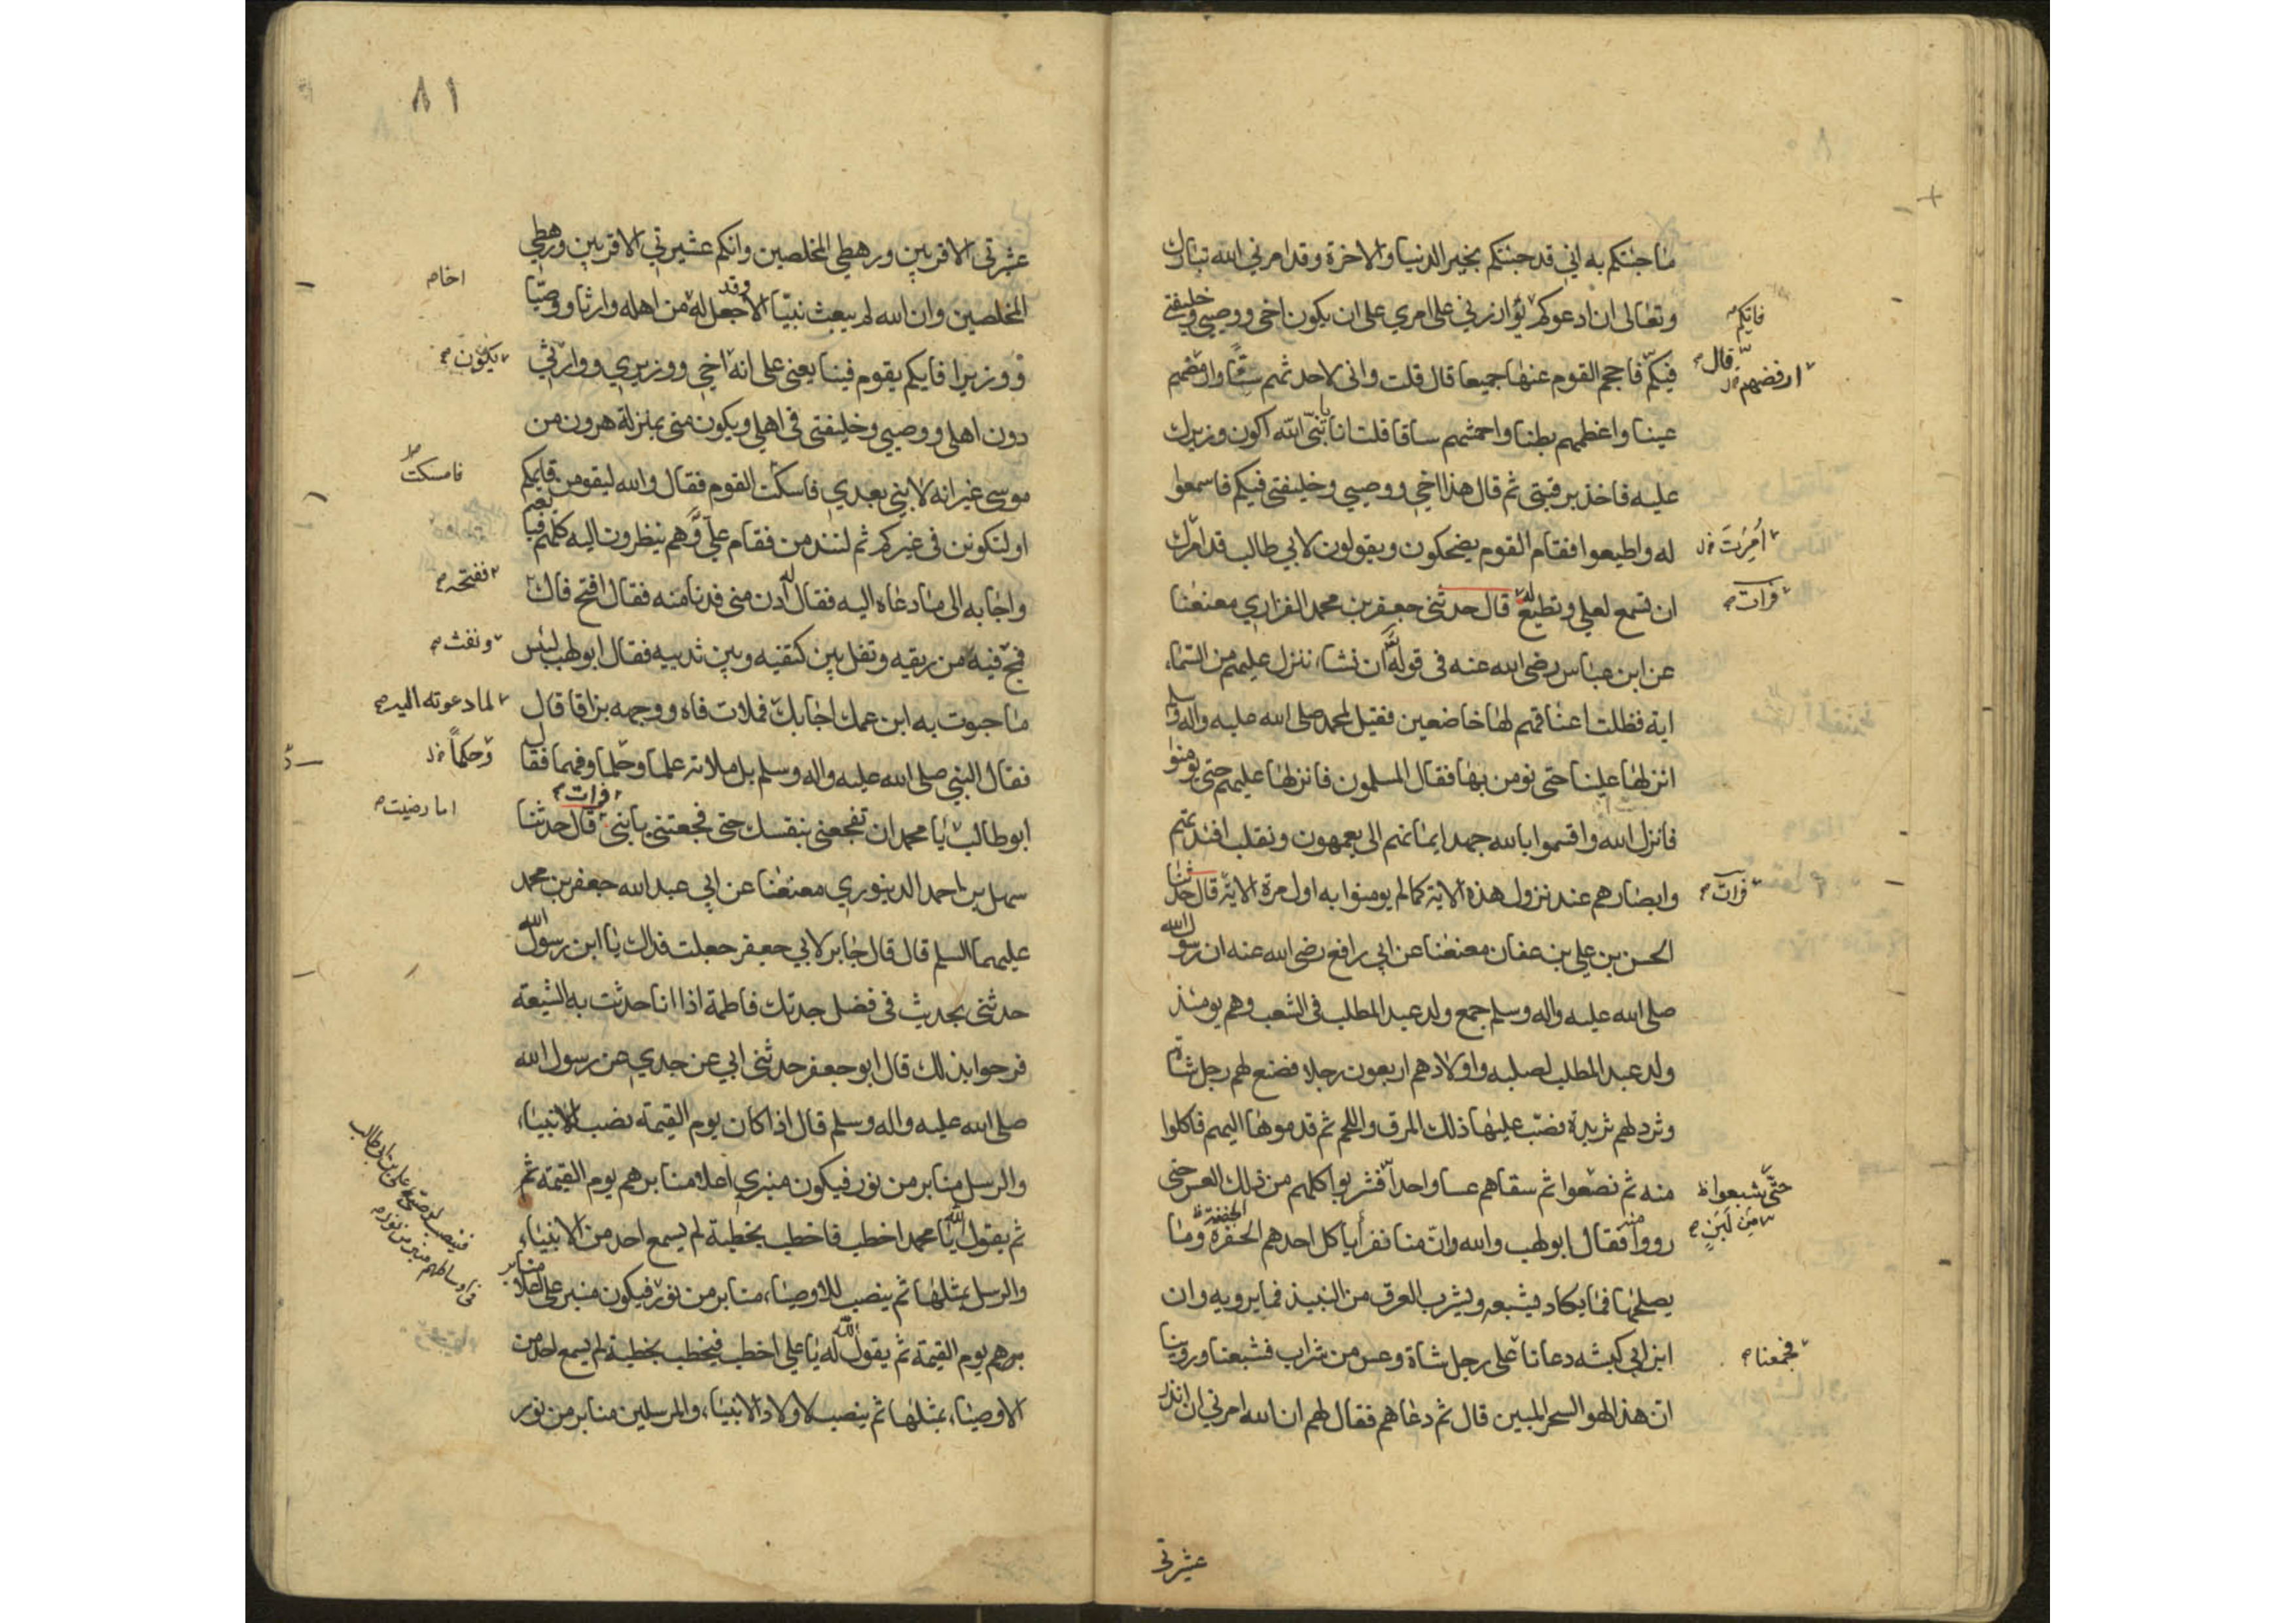 ما جئتكم به اني قد جئتكم بخير الدنيا والاخرة وقد امرني الله تبارك
وتعالى ان ادعوكم يؤازرني على امري على ان يكون اخي ووصيي وخليفتي
فيكم فاحجم القوم عنها جميعا قال قلت واني لاحدثهم سنا وارمضهم
عينا واعظمهم بطنا واحمشهم ساقا قلت انا يا نبي الله اكون وزيرك
عليه فاخذ برقبتي ثم قال هذا اخي ووصيي وخليفتي فيكم فاسمعوا
له واطيعوا فقام القوم يضحكون ويقولون لابي طالب قد امرك
ان تسمع لعلي وتطيع له قال حدثني جعفر بن محمد الفزاري معنعنا
عن ابن عباس رضي الله عنه في قوله ان نشاء ننزل عليهم من السماء
اية فظلت اعناقهم لها خاضعين فقيل لمحمد صلى الله عليه واله وسلم
انزلها علينا حتى نومن بها فقال المسلمون فانزلها عليهم حتى يومنوا
فانزل الله واقسموا بالله جهد ايمانهم الى يعمهون ونقلب افئدتهم
وابصارهم عند نزول هذه الاية كما لم يومنوا به اول مرة الاية قال حدثنا
الحسن بن علي بن عفان معنعنا عن ابي رافع رضي الله عنه ان رسول الله
صلى الله عليه واله وسلم جمع ولد عبد المطلب في الشعب وهم يومئذ
ولد عبد المطلب لصلبه واولادهم اربعون رجلا فصنع لهم رجل شاة
وثرد لهم ثريدة فصب عليها ذلك المرق واللحم ثم قدموها اليهم فاكلوا
منه ثم تضعوا ثم سقاهم عسا واحدا فشربوا كلهم من ذلك العس حتى
رووا منه فقال ابو لهب والله وان منا نفرا ياكل احدهم الحفرة وما
يصلحها فما يكاد يشبعه ويشرب العرق من النبيذ فما يرويه وان
ابن ابي كبشه دعانا على رجل شاة وعس من شراب فشبعنا وروينا
ان هذا لهو السحر المبين قال ثم دعاهم فقال لهم ان الله امرني ان انذر
فايكم
قال
ارفضهم
امرت
فرات
فرات
الجفنة
حتى شبعوا
من لبن
فجمعنا
عشرتي
٨١
عشرتي الاقربين ورهطي المخلصين وانكم عشيرتي الاقربين ورهطي
المخلصين وان الله لم يبعث نبيا الا وقد جعل له من اهله وارثا ووصيا
ووزيرا فايكم يقوم فيبايعني على انه اخي ووزيري ووارثي
دون اهلي ووصيي وخليفتي في اهلي ويكون مني بمنزلة هرون من
موسى غير انه لا نبي بعدي فاسكت القوم فقال والله ليقومن قايمكم
او لتكونن في غيركم ثم لتندمن فقام علي وهم ينظرون اليه كلهم فبايعه
واجابه الى ما دعاه اليه فقال له ادن مني فدنا منه فقال افتح فاك
فمج فيه من ريقه وتفل بين كتفيه وبين ثدييه فقال ابو لهب لبئس
ما حبوت به ابن عمك اجابك فملات فاه ووجهه بزاقا قال
فقال النبي صلى الله عليه واله وسلم بل ملاته علما وحلما وفهما فقال
ابو طالب يا محمد ان تفجعني بنفسك حتى فجعتني بابني قال حدثنا
سهل بن احمد الدينوري معنعنا عن ابي عبد الله جعفر بن محمد
عليهما السلم قال قال جابر لابي جعفر جعلت فداك يا ابن رسول الله
حدثني بحديث في فضل جدتك فاطمة اذا انا حدثت به الشيعة
فرحوا بذلك قال ابو جعفر حدثني ابي عن جدي عن رسول الله
صلى الله عليه واله وسلم قال اذا كان يوم القيمة نصب للانبياء
والرسل منابر من نور فيكون منبري اعلا منابرهم يوم القيمة ثم
ثم يقول الله يا محمد اخطب فاخطب بخطبة لم يسمع احد من الانبياء
والرسل بمثلها ثم ينصب للاوصياء منابر من نور فيكون منبر علي اعلا منا
برهم يوم القيمة ثم يقول الله له يا علي اخطب فيخطب بخطبة لم يسمع احد من
الاوصياء بمثلها ثم ينصب لاولاد الانبياء والمرسلين منابر من نور
اخا
يكون
فامسكت
ففتحه
ونفث
لما دعوته اليه
وحكما
فرات
اما رضيت
فينصب لوصيي علي بن ابي طالب
في اوساطهم منبر من نور